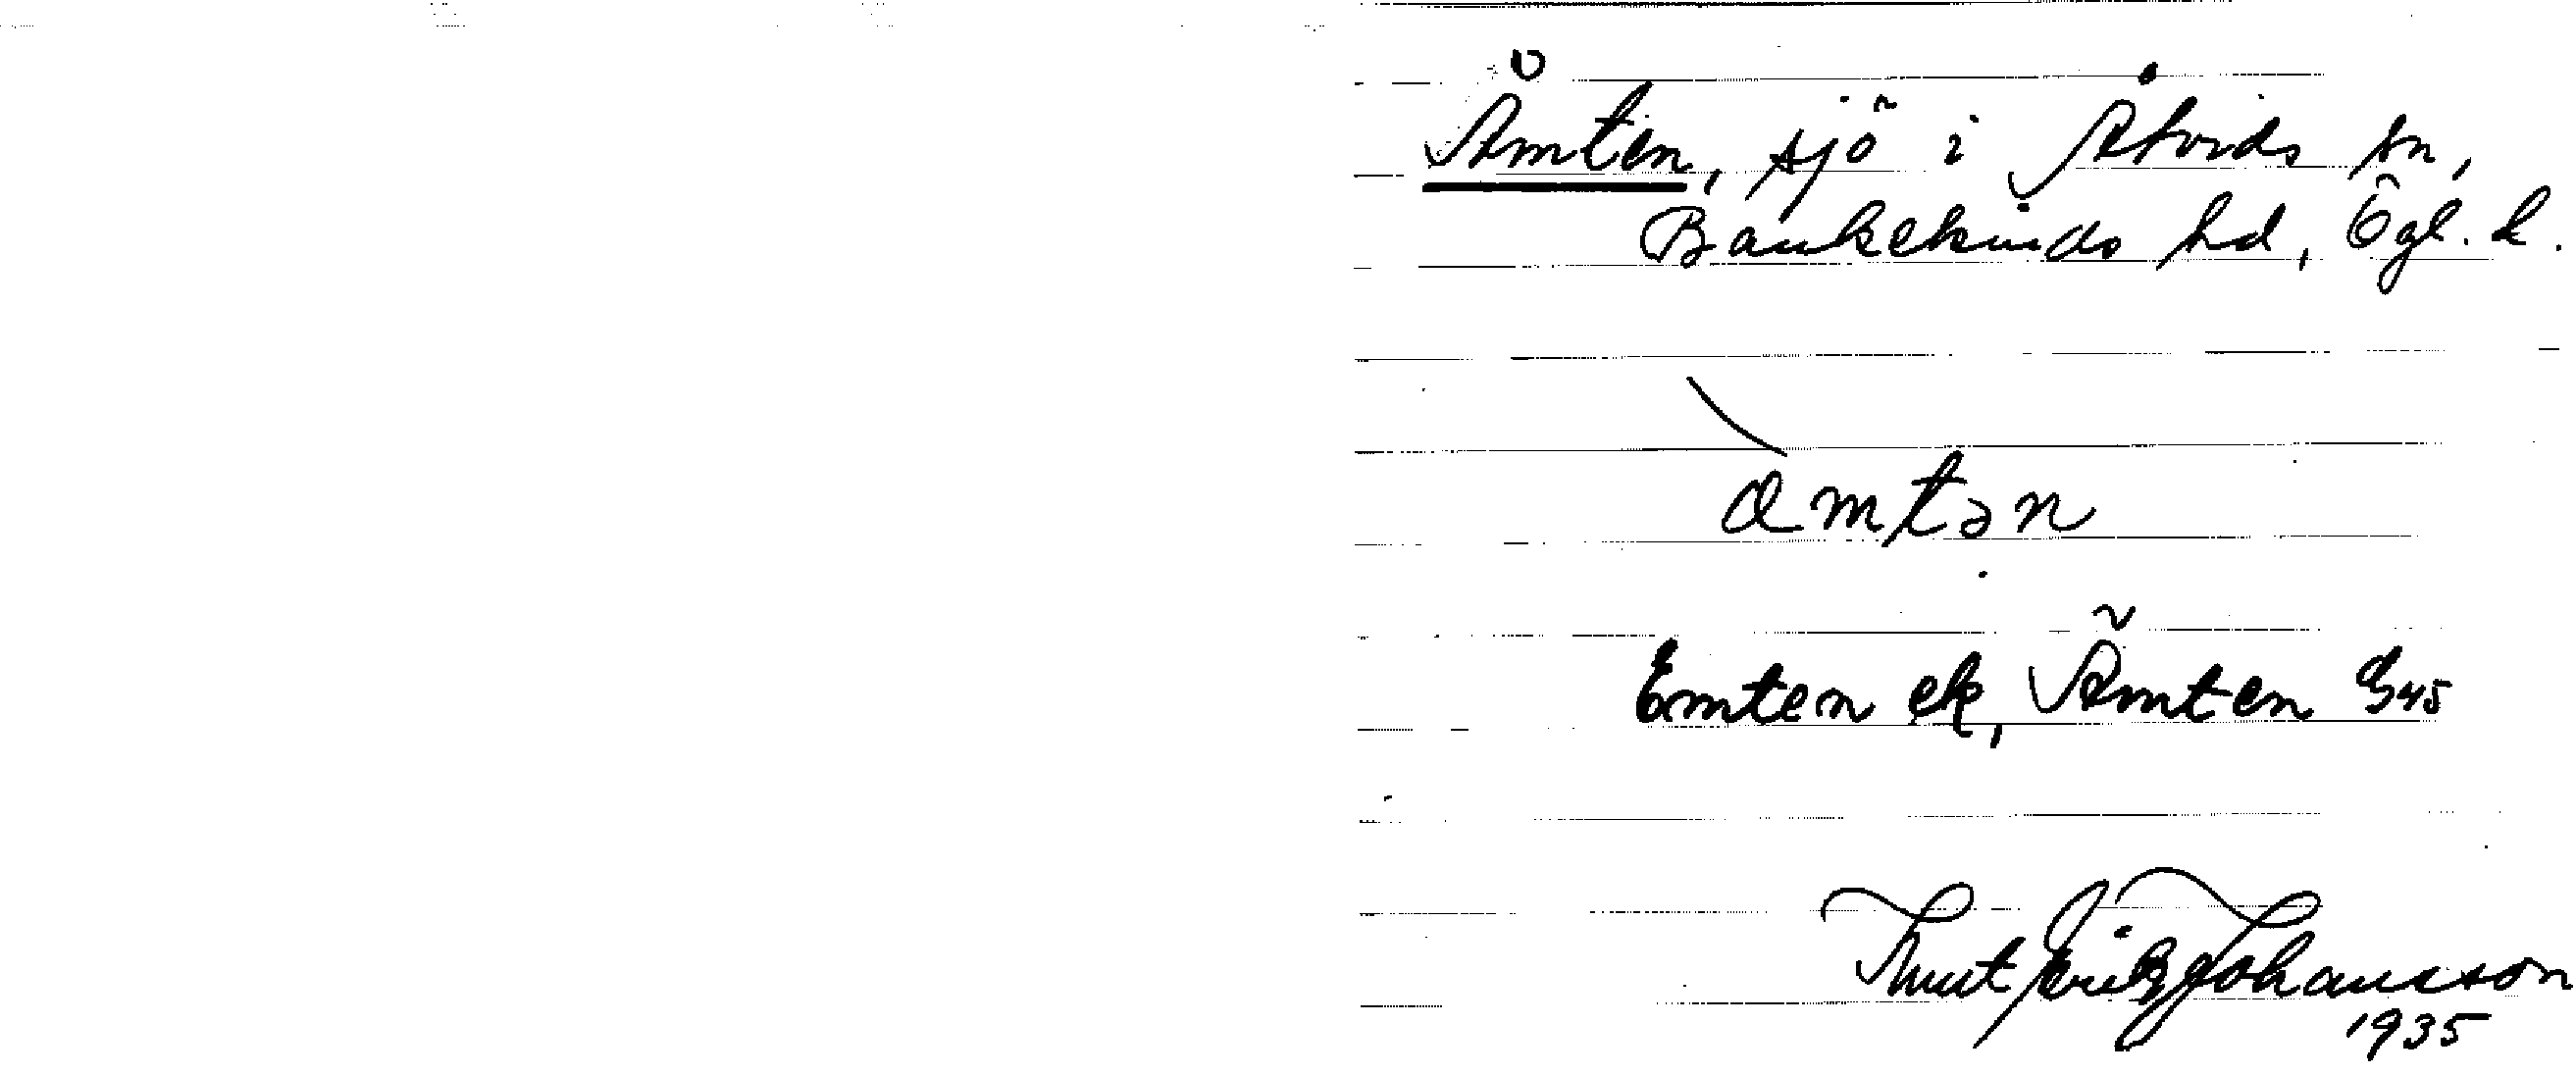 Åmten, sjö i Åtvids sn,
Bankekinds hd, Ögl. l.
amtən
Emten ek, Ämten G45
Knut Fritz Johansson
1935